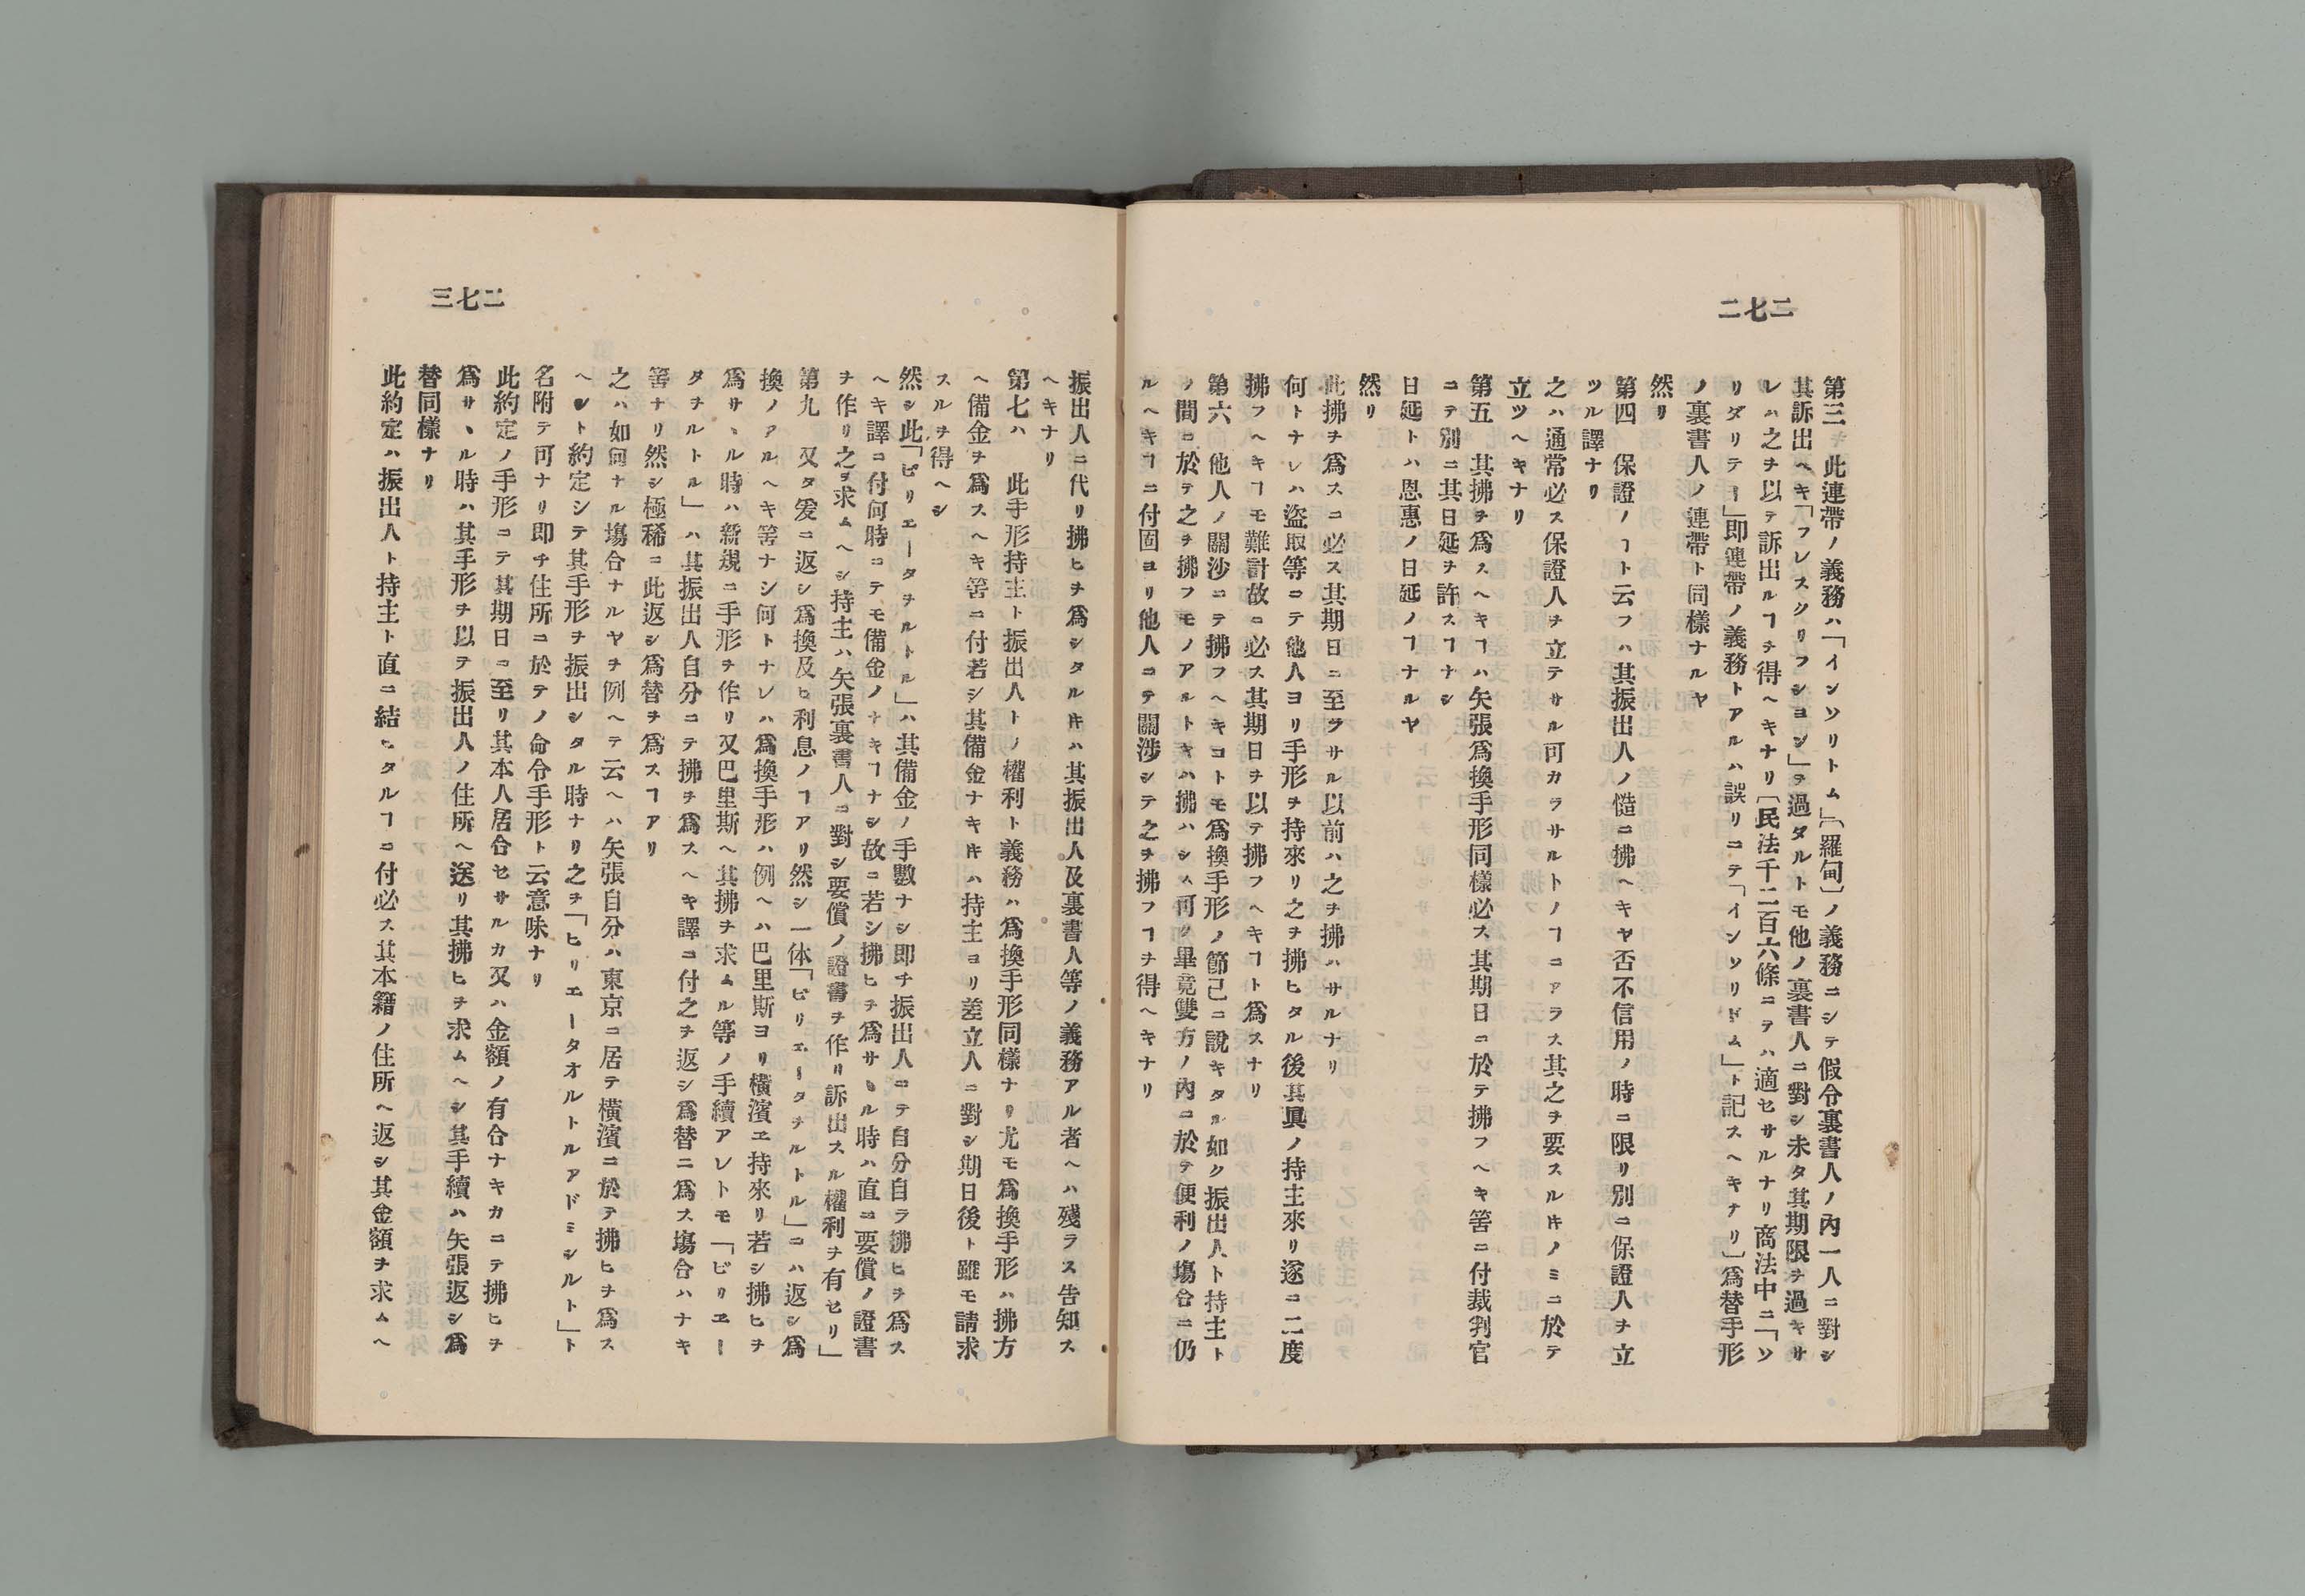 二七二
第三 此連帶ノ義務ハ「インソリトム」〔羅甸〕ノ義務ニシテ假令裏書人ノ內一人ニ對シ
其訴出ヘキ「フレスクリフシヨン」ヲ過タルトモ他ノ裏書人ニ對シ未タ其期限ヲ過キサ
レハ之ヲ以テ訴出ルヿヲ得ヘキナリ〔民法千二百六條ニテハ適セサルナリ商法中ニ「ソ
リダリテー」卽連帶ノ義務トアルハ誤リニテ「インソリドム」ト記スヘキナリ〕爲替手形
ノ裏書人ノ連帶ト同樣ナルヤ
然リ
第四 保證ノヿト云フハ其振出人ノ慥ニ拂ヘキヤ否不信用ノ時ニ限リ別ニ保證人ヲ立
ツル譯ナリ
之ハ通常必ス保證人ヲ立テサル可カラサルトノヿニアラス其之ヲ要スル𪜈ノミニ於テ
立ツヘキナリ
第五 其拂ヲ爲スヘキヿハ矢張爲換手形同樣必ス其期日ニ於テ拂フヘキ筈ニ付裁判官
ニテ別ニ其日延ヲ許スヿナシ
日延トハ恩惠ノ日延ノヿナルヤ
然リ
此拂ヲ爲スニ必ス其期日ニ至ラサル以前ハ之ヲ拂ハサルナリ
何トナレハ盜取等ニテ他人ヨリ手形ヲ持來リ之ヲ拂ヒタル後其眞ノ持主來リ遂ニ二度
拂フヘキヿモ難計故ニ必ス其期日ヲ以テ拂フヘキヿト爲スナリ
第六 他人ノ關涉ニテ拂フヘキコトモ爲換手形ノ節已ニ說キタル如ク振出人ト持主ト
ノ間ニ於テ之ヲ拂フモノアルトキハ拂ハシム可ク畢竟雙方ノ內ニ於テ便利ノ塲合ニ仍
ルヘキヿニ付固ヨリ他人ニテ關涉シテ之ヲ拂フヿヲ得ヘキナリ
二七三
振出人ニ代リ拂ヒヲ爲シタル𪜈ハ其振出人及裏書人等ノ義務アル者ヘハ殘ラス告知ス
ヘキナリ
第七ハ 此手形持主ト振出人トノ權利ト義務ハ爲換手形同樣ナリ尤モ爲換手形ハ拂方
ヘ備金ヲ爲スヘキ筈ニ付若シ其備金ナキ𪜈ハ持主ヨリ差立人ニ對シ期日後ト雖モ請求
スルヲ得ヘシ
然シ此「ビリエータヲルトル」ハ其備金ノ手數ナシ卽チ振出人ニテ自分自ラ拂ヒヲ爲ス
ヘキ譯ニ付何時ニテモ備金ノナキヿナシ故ニ若シ拂ヒヲ爲サヽル時ハ直ニ要償ノ證書
ヲ作リ之ヲ求ムヘシ持主ハ矢張裏書人ニ對シ要償ノ證書ヲ作リ訴出スル權利ヲ有セリ」
第九 又タ爰ニ返シ爲換及ヒ利息ノヿアリ然シ一体「ビリエータヲルトル」ニハ返シ爲
換ノアルヘキ筈ナシ何トナレハ爲換手形ハ例ヘハ巴里斯ヨリ橫濱ヱ持來リ若シ拂ヒヲ
爲サヽル時ハ新規ニ手形ヲ作リ又巴里斯ヘ其拂ヲ求ムル等ノ手續アレトモ「ビリヱー
タヲルトル」ハ其振出人自分ニテ拂ヲ爲スヘキ譯ニ付之ヲ返シ爲替ニ爲ス塲合ハナキ
筈ナリ然シ極稀ニ此返シ爲替ヲ爲スヿアリ
之ハ如何ナル塲合ナルヤヲ例ヘテ云ヘハ矢張自分ハ東京ニ居テ橫濱ニ於テ拂ヒヲ爲ス
ヘシト約定シテ其手形ヲ振出シタル時ナリ之ヲ「ヒリエータオルトルアドミシルト」ト
名附テ可ナリ卽チ住所ニ於テノ命令手形ト云意味ナリ
此約定ノ手形ニテ其期日ニ至リ其本人居合セサルカ又ハ金額ノ有合ナキカニテ拂ヒヲ
爲サヽル時ハ其手形ヲ以テ振出人ノ住所ヘ送リ其拂ヒヲ求ムヘシ其手續ハ矢張返シ爲
替同樣ナリ
此約定ハ振出人ト持主ト直ニ結ヒタルヿニ付必ス其本籍ノ住所ヘ返シ其金額ヲ求ムヘ